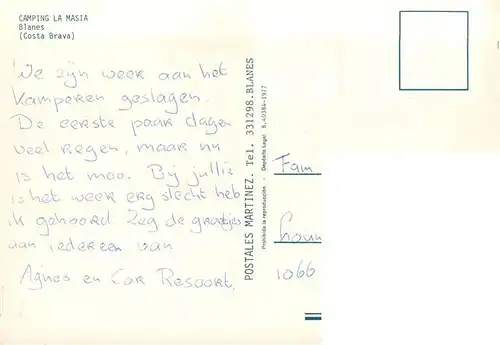 CAMPING LA MASIA
Blanes
(Costa Brava)
We zijn weer aan het
kamperen geslagen.
De eerste paar dagen
veel regen, maar nu
is het moo. Bij jullie
is het weer erg slecht heb
ik gehoord. Zeg de groetjes
aan iedereen van
Agnes en Cor Resoort.
POSTALES MARTINEZ. Tel. 331298.BLANES
Prohibida la reproducción - Depósito Legal B.40384-1977
Fam
1066